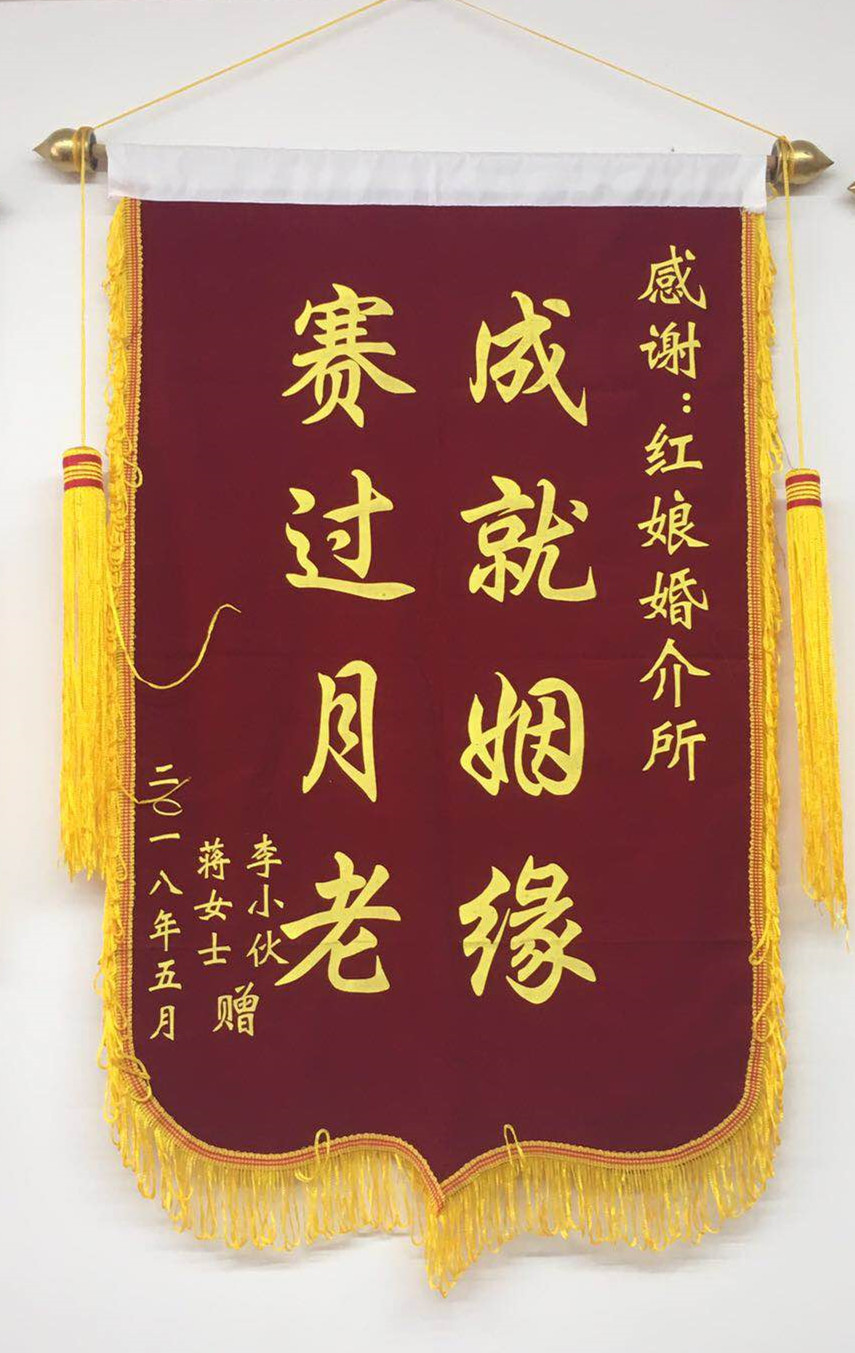 感谢：红娘婚介所
成就姻缘
赛过月老
李小伙
蒋女士
赠
二〇一八年五月